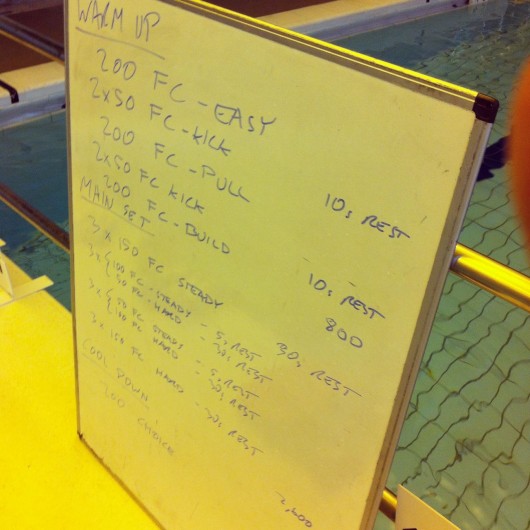 WARM UP
200 FC - EASY
2x50 FC - KICK 10s REST
200 FC - PULL
2x50 FC KICK 10s REST
200 FC - BUILD 800
MAIN SET
3 x 150 FC STEADY 30s REST
3x { 100 FC - STEADY - 5s REST
50 FC - HARD - 30s REST
3x { 50 FC STEADY - 5s REST
100 FC HARD - 30s REST
3 x 150 FC HARD - 30s REST
COOL DOWN
200 CHOICE
2,800